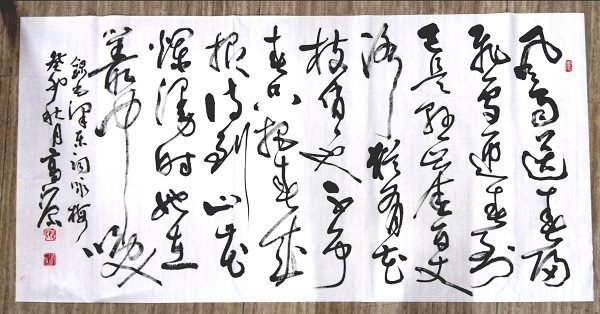 风雨送春归
飞雪迎春到
已是悬崖百丈
冰犹有花
枝俏俏也不争
春只把春来
报待到山花
烂漫时她在
丛中笑
錄毛泽东词咏梅
癸卯秋月高